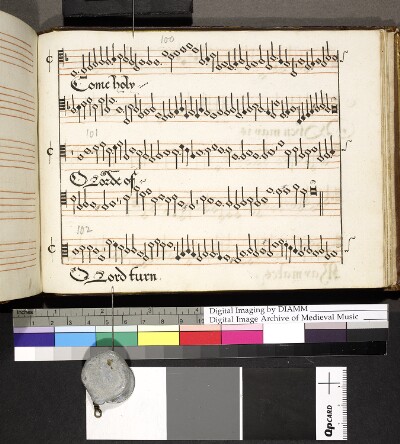 100
Come holy
101
O Lorde of
102
O Lord turn.
Digital Imaging by DIAMM
Digital Image Archive of Medieval Music
inches
QPCARD